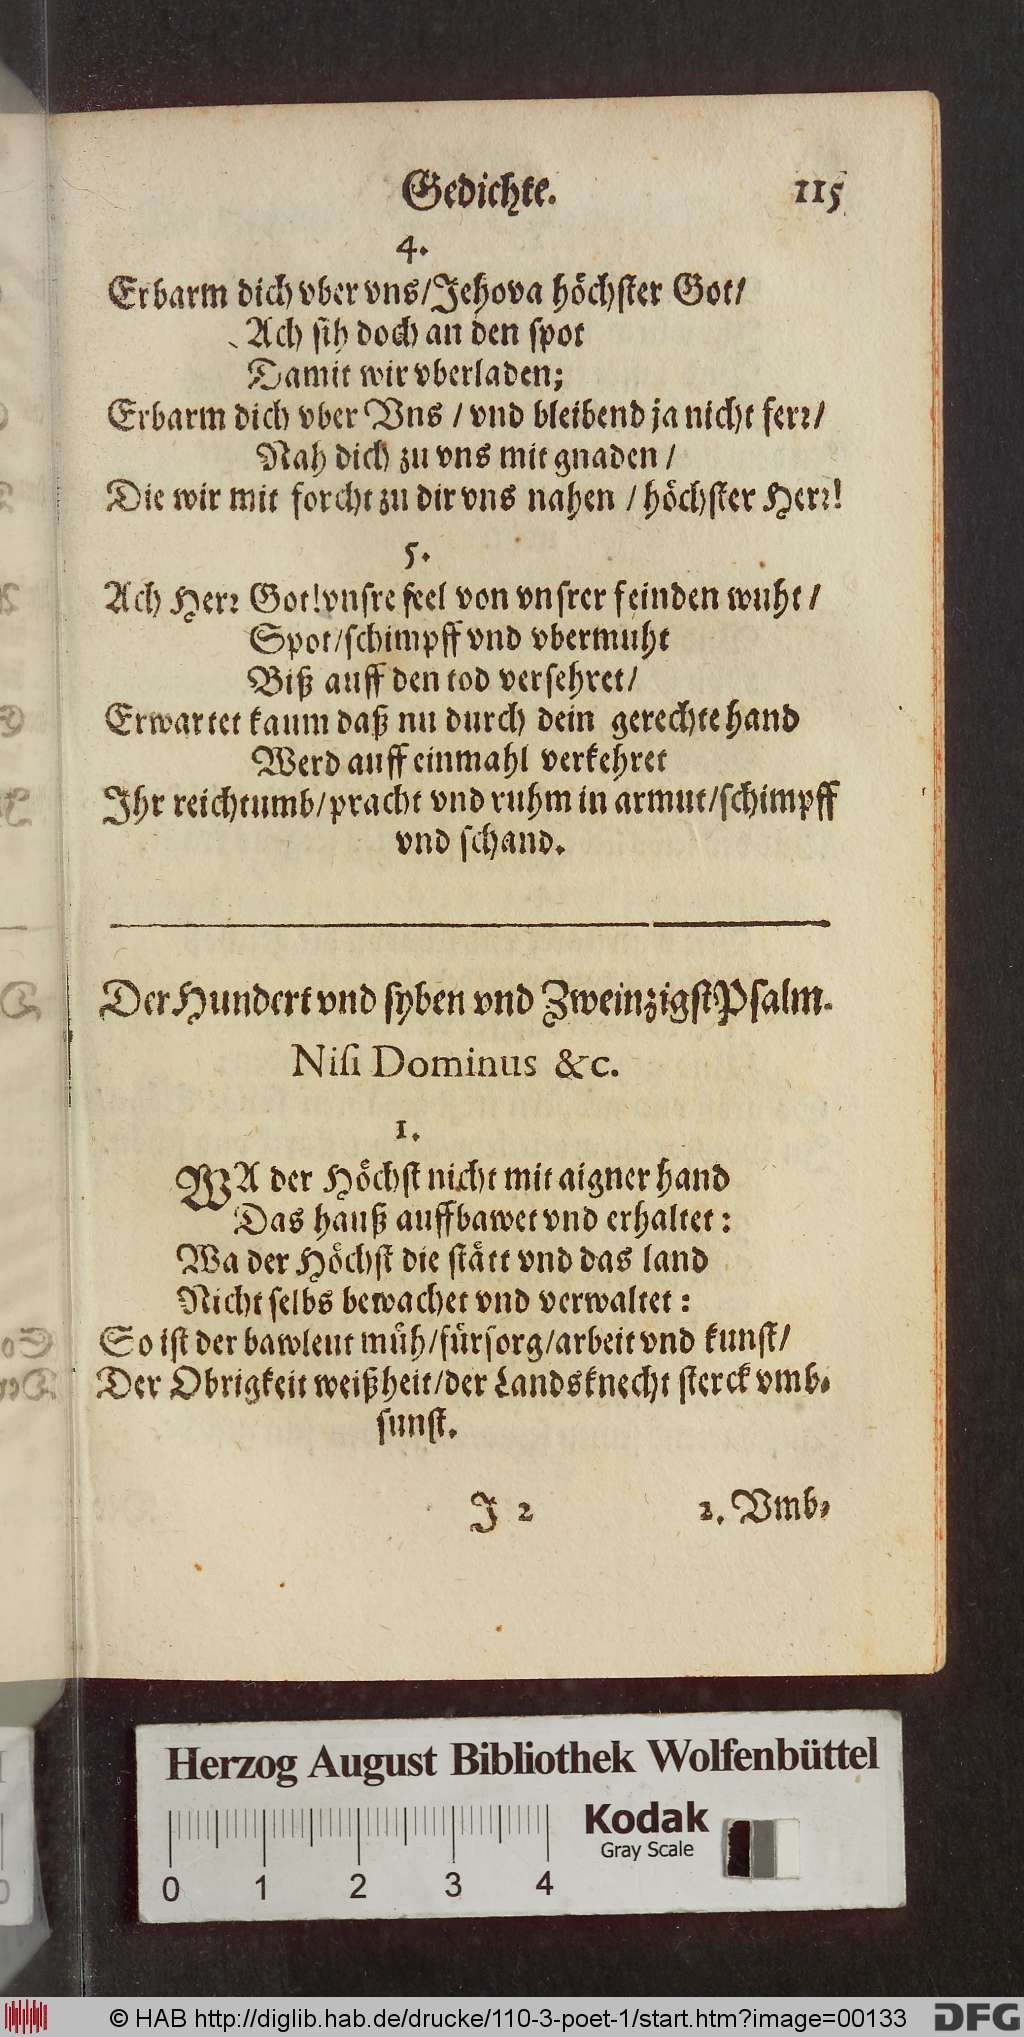 Gedichte. 115
4.
Erbarm dich vber vns/Jehova höchster Got/
Ach sih doch an den spot
Damit wir vberladen;
Erbarm dich vber Vns / vnd bleibend ja nicht ferꝛ/
Nah dich zu vns mit gnaden /
Die wir mit forcht zu dir vns nahen / höchster Herꝛ!
5.
Ach Herꝛ Got! vnsre seel von vnsrer feinden wuht /
Spot/schimpff vnd vbermuht
Biß auff den tod versehret/
Erwartet kaum daß nu durch dein gerechte hand
Werd auff einmahl verkehret
Ihr reichtumb/pracht vnd ruhm in armut/schimpff
vnd schand.
Der Hundert vnd syben vnd Zweinzigst Psalm.
Nisi Dominus &c.
1.
WA der Höchst nicht mit aigner hand
Das hauß auffbawet vnd erhaltet:
Wa der Höchst die stätt vnd das land
Nicht selbs bewachet vnd verwaltet:
So ist der bawleut müh/fürsorg/arbeit vnd kunst/
Der Obrigkeit weißheit/der Landsknecht sterck vmb-
sunst.
J 2 2. Vmb-
Herzog August Bibliothek Wolfenbüttel
Kodak
Gray Scale
0 1 2 3 4
© HAB http://diglib.hab.de/drucke/110-3-poet-1/start.htm?image=00133 DFG